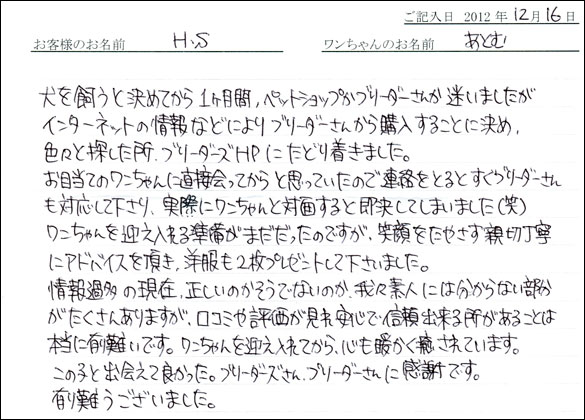 ご記入日 2012年12月16日
お客様のお名前 H.S ワンちゃんのお名前 あとむ
犬を飼うと決めてから1ヶ月間,ペットショップかブリーダーさんか迷いましたが
インターネットの情報などによりブリーダーさんから購入することに決め,
色々と探した所,ブリーダーズHPにたどり着きました。
お目当てのワンちゃんに直接会ってからと思っていたので連絡をとるとすぐブリーダーさん
も対応して下さり、実際にワンちゃんと対面すると即決してしまいました(笑)
ワンちゃんを迎え入れる準備がまだだったのですが、笑顔をたやさず親切丁寧
にアドバイスを頂き,洋服も2枚プレゼントして下さいました。
情報過多の現在,正しいのかそうでないのか,我々素人には分からない部分
がたくさんありますが,口コミや評価が見れ安心で信頼出来る所があることは
本当に有難いです。ワンちゃんを迎え入れてから,心も暖かく癒されています。
この子と出会えて良かった。ブリーダーズさん,ブリーダーさんに感謝です。
有り難うございました。